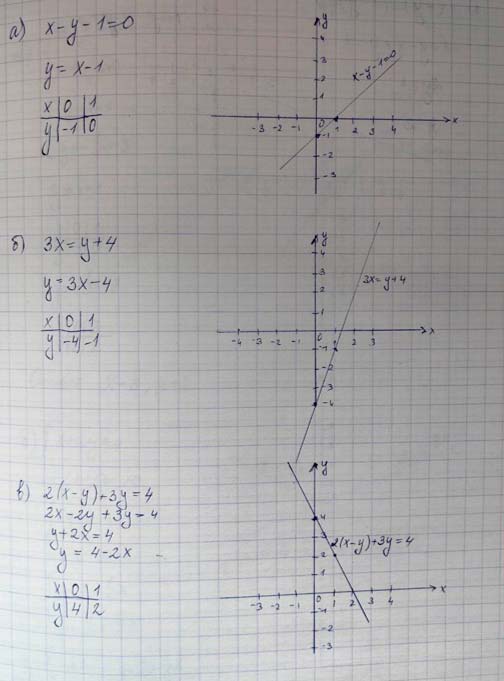 а) x-y-1=0
y = x-1
x | 0 | 1
y | -1 | 0
y
4
3
2
1
x-y-1=0
-3 -2 -1 0 1 2 3 4 x
-1
-2
-3
б) 3x=y+4
y = 3x-4
x | 0 | 1
y | -4 | -1
y
4
3
2
1
3x=y+4
-4 -3 -2 -1 0 1 2 3 x
-1
-2
-3
-4
в) 2(x-y)+3y=4
2x-2y+3y=4
y+2x=4
y = 4-2x
x | 0 | 1
y | 4 | 2
y
4
3
2
1
2(x-y)+3y=4
-3 -2 -1 0 1 2 3 4 x
-1
-2
-3